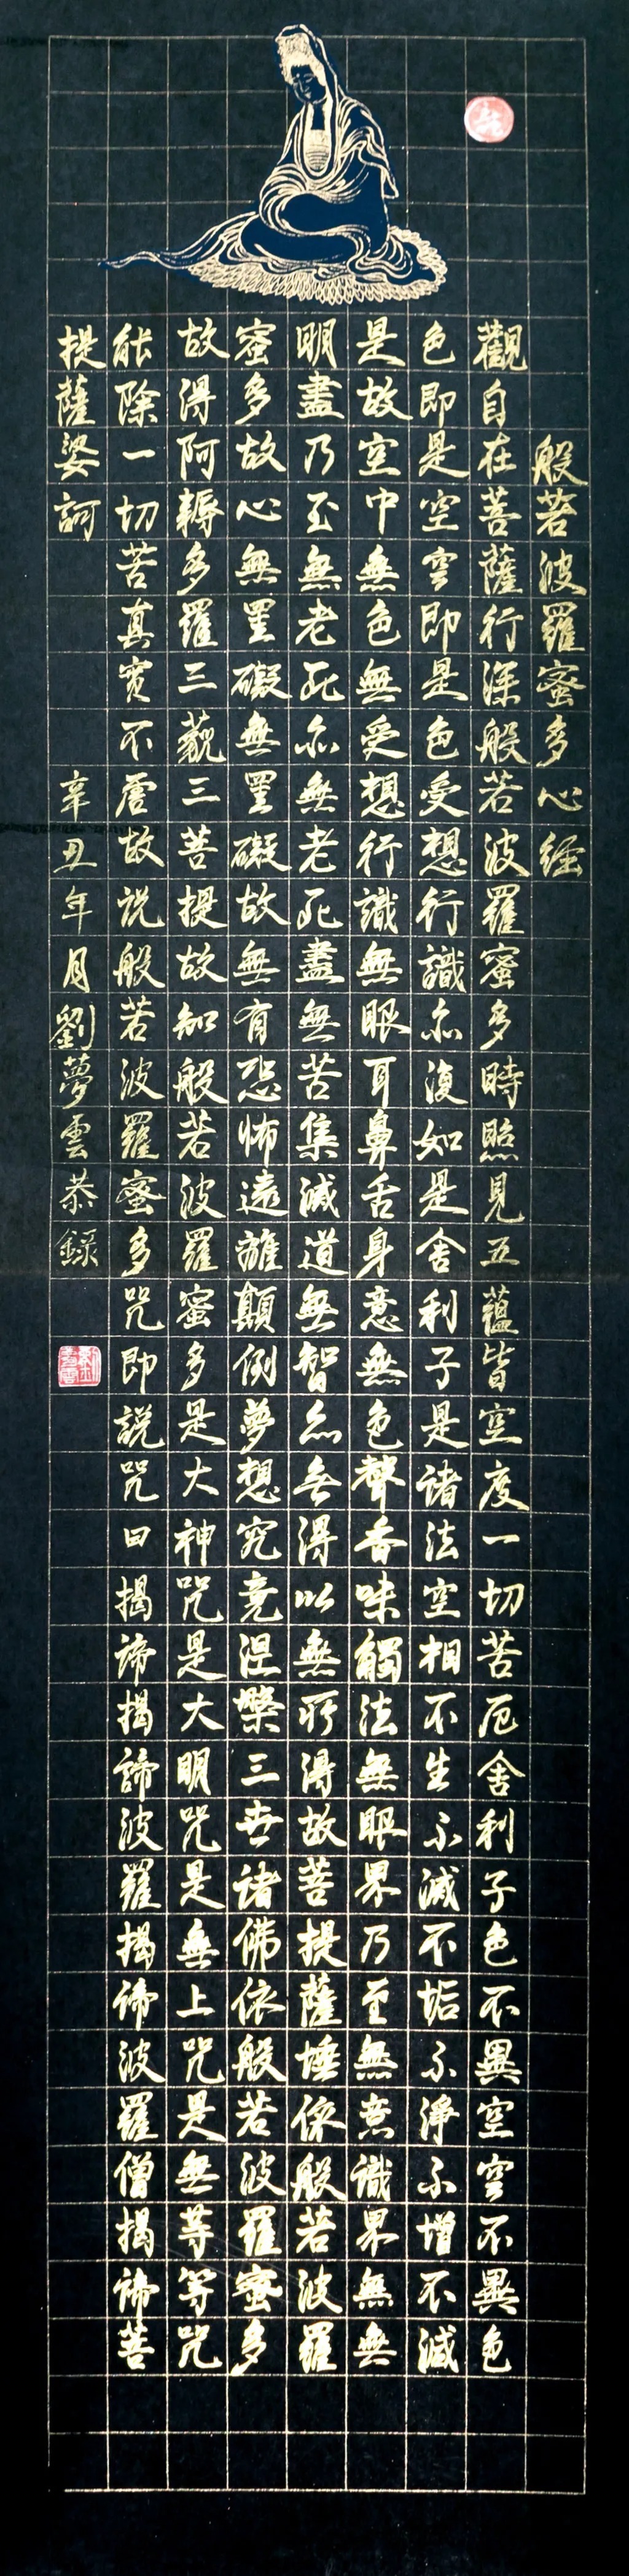 般若波羅蜜多心經
觀自在菩薩行深般若波羅蜜多時照見五蘊皆空度一切苦厄舍利子色不異空空不異色
色即是空空即是色受想行識亦復如是舍利子是諸法空相不生不滅不垢不淨不增不減
是故空中無色無受想行識無眼耳鼻舌身意無色聲香味觸法無眼界乃至無意識界無無
明盡乃至無老死亦無老死盡無苦集滅道無智亦無得以無所得故菩提薩埵依般若波羅
蜜多故心無罣礙無罣礙故無有恐怖遠離顛倒夢想究竟涅槃三世諸佛依般若波羅蜜多
故得阿耨多羅三藐三菩提故知般若波羅蜜多是大神咒是大明咒是無上咒是無等等咒
能除一切苦真實不虛故說般若波羅蜜多咒即說咒曰揭諦揭諦波羅揭諦波羅僧揭諦菩
提薩婆訶
辛丑年月劉夢雲恭錄